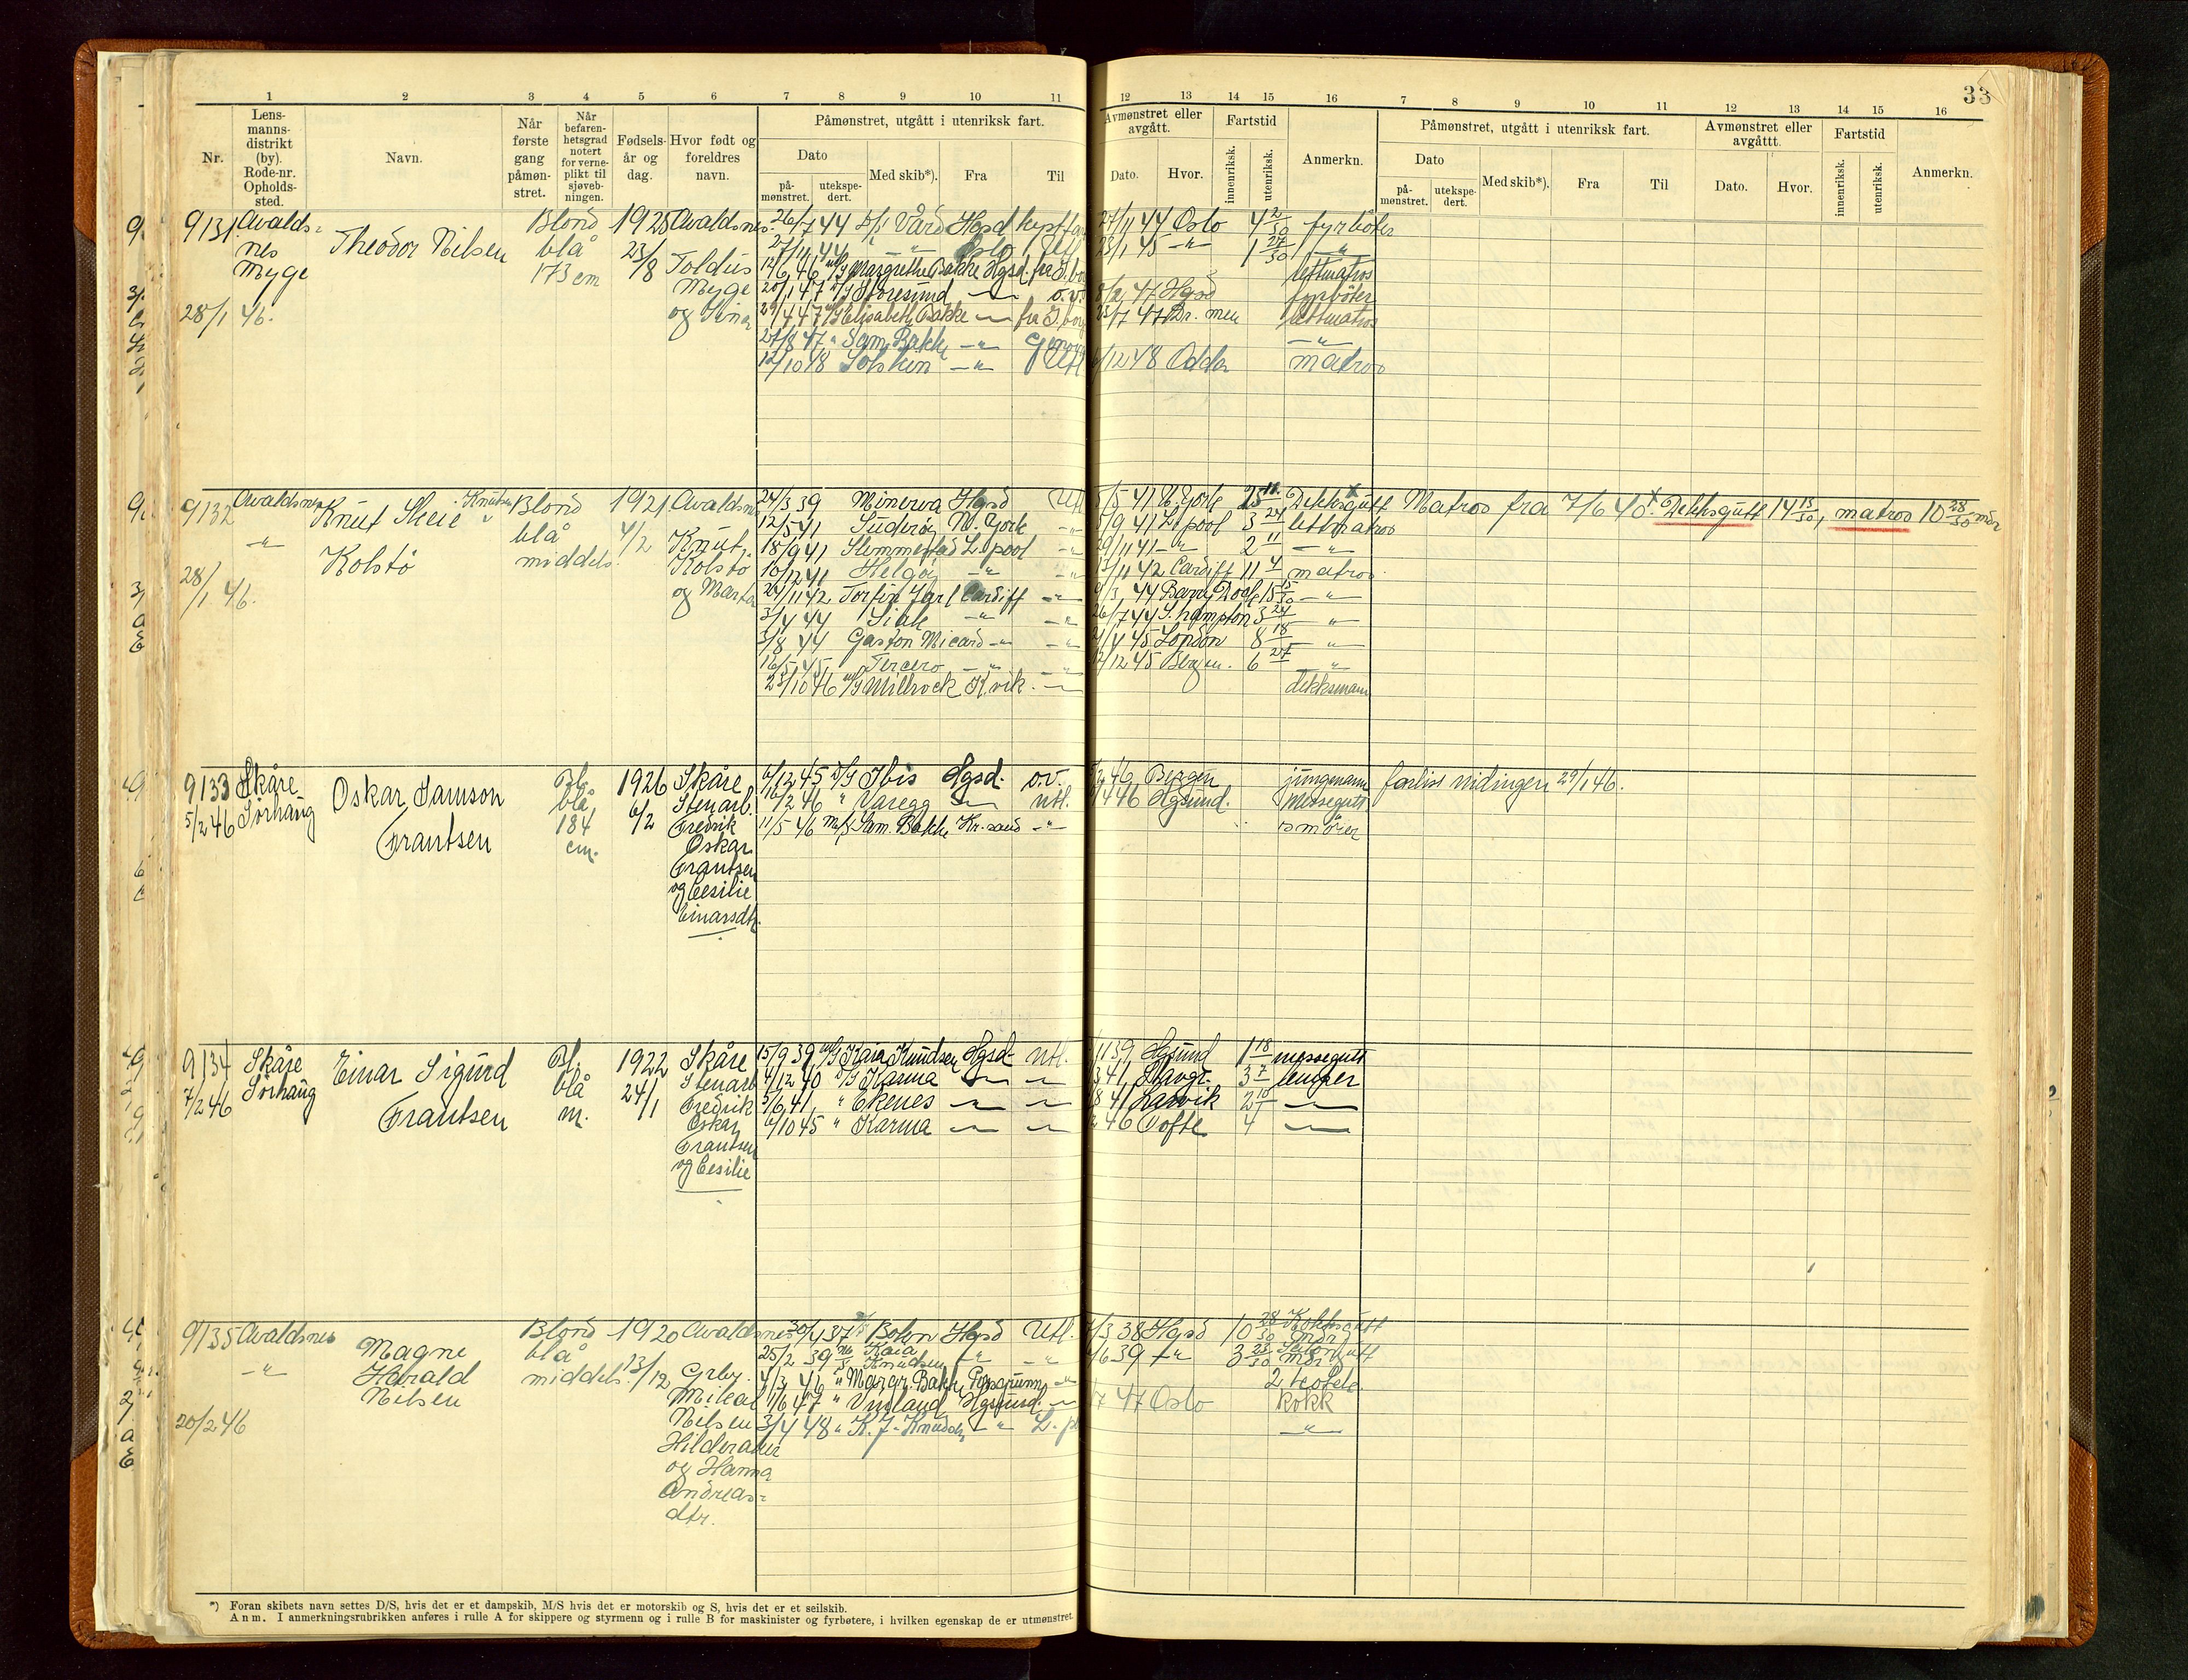 33
1 2 3 4 5 6 7 8 9 10 11 12 13 14 15 16 7 8 9 10 11 12 13 14 15 16
Nr.
Lens-
manns-
distrikt
(by).
Rode-nr.
Opholds-
sted.
Navn.
Når
første
gang
påmøn-
stret.
Når
befaren-
hetsgrad
notert
for verne-
plikt til
sjøveb-
ningen.
Fødsels-
år og
dag.
Hvor født og
foreldres
navn.
Påmønstret, utgått i utenriksk fart.
Dato
på-
mønstret.
utekspe-
dert.
Med skib*).
Fra
Til
Avmønstret eller
avgått.
Dato.
Hvor.
Fartstid
innenriksk.
utenriksk.
Anmerkn.
Påmønstret, utgått i utenriksk fart.
Dato
på-
mønstret.
utekspe-
dert.
Med skib*).
Fra
Til
Avmønstret eller
avgåttt.
Dato.
Hvor.
Fartstid
innenriksk.
utenriksk
Anmerkn.
9131 Avalds-
nes
Myge
28/1 46.
Theodor Nilsen
Blond
blå
173 cm
1925
23/8
Avaldsnes
Toldus
Myge
og Sina
26/7 44 D/S Vård Hgsd kystfart 27/11 44 Oslo 4 2/30 fyrbøter
27/11 44 " -"- Oslo Utl 23/1 45 -"- 1 27/30 -"-
12/6 46 M/S Margrethe Bakke Hgsd. fra lettmatros
20/1 47 D/S Storesund -"- o.v. 8/2 47 Hgsd fyrbøter
29/4 47 M/S Elisabeth Bakke -"- fra lettmatros
27/8 47 " Sam. Bakke -"- -"-
12/10 48 Solskin -"- Utl 12 48 Odda matros
9132 Avaldsnes
-"-
28/1 46.
Knut Skeie Knutsen
Kolstø
Blond
blå
middels
1921
4/2
Avaldsnes
Knut
Kolstø
og Marta
24/3 39 Minerva Hgsd Utl 5/5 41 N. York 25 11 Dekksgutt
Matros fra 7/6 40. Dekksgutt 14 13/30, matros 10 28/30 mdr
12/5 41 Suderøy N. York -"- 5/9 41 L. pool 3 24 lettmatros
18/9 41 Slemmestad L. pool -"- 29/11 41 -"- 2 11 -"-
10/12 41 Helgøy -"- -"- 13/11 42 Cardiff 11 4 matros.
24/11 42 Torfin Jarl Cardiff -"- 3 44 Barry Dock 15 15/30 -"-
3/4 44 Siak -"- -"- 26/7 44 S. hampton 3 24 -"-
3/8 44 Gaston Micard -"- -"- 4 45 London 8 18 -"-
16/5 45 Tercero -"- -"- 12 45 Bergen. 6 27 -"-
23/10 46 M/S Millrock K.vik. -"- dekksmann
9133 Skåre
5/2 46 Sørhaug
Oskar Samson
Frantsen
Bl.
blå
184
cm.
1926
6/2
Skåre
Stenarb.
Fredrik
Oskar
Frantsen
og Cesilie
Einarsdtr.
6/12 45 D/S Ibis Hgsd. o.v. 2 46 Bergen jungmann forliss nidingen 29/1 46.
16/2 46 " Varegg -"- utl. 4 46 Hgsund. Messegutt
11/5 46 M/S Sam. Bakke Kr.sand -"- smører
9134 Skåre
7/2 46 Sørhaug
Einar Sigurd
Frantsen
Bl.
blå
m.
1922
24/1
Skåre
Stenarb
Fredrik
Oskar
Frantsen
og Cesilie
15/9 39 M/S Kaia Knudsen Hgsd- Utl. 11 39 Hgsund 1 18 messegutt
4/12 40 D/S Karma -"- -"- 3 41 Stavgr. 3 7 lemper
5/6 41 " Ekenes -"- -"- 8 41 Larvik 2 -"-
6/10 45 " Karma -"- -"- 46 Tofte 4 -"-
9135 Avaldsnes
-"-
20/2 46
Magne
Harald
Nilsen
Blond
blå
middels
1920
13/12
Avaldsnes
Grbr.
Mikal
Nilsen
Hilderaker
og Hanna
Andreas-
dtr.
30/4 37 D/S Botvn Hgsd Utl. 3 38 Hgsd 10 28/30 mdr Kokksgutt
25/2 39 M/S Kaia Knudsen -"- -"- 6 39 -"- 3 23/30 mdr
4/3 46 " Margr. Bakke Porsgrunn -"- 2 kokk
1/6 47 " Vinland Hgsund. -"- 7 47 Oslo Kokk
3/4 48 " K. J. Knudsen -"- -"-
*) Foran skibets navn settes D/S, hvis det er et dampskib, M/S hvis det er motorskib og S, hvis det er et seilskib.
Anm. I anmerkningsrubrikken anføres i rulle A for skippere og styrmenn og i rulle B for maskinister og fyrbøtere, i hvilken egenskap de er utmønstret.